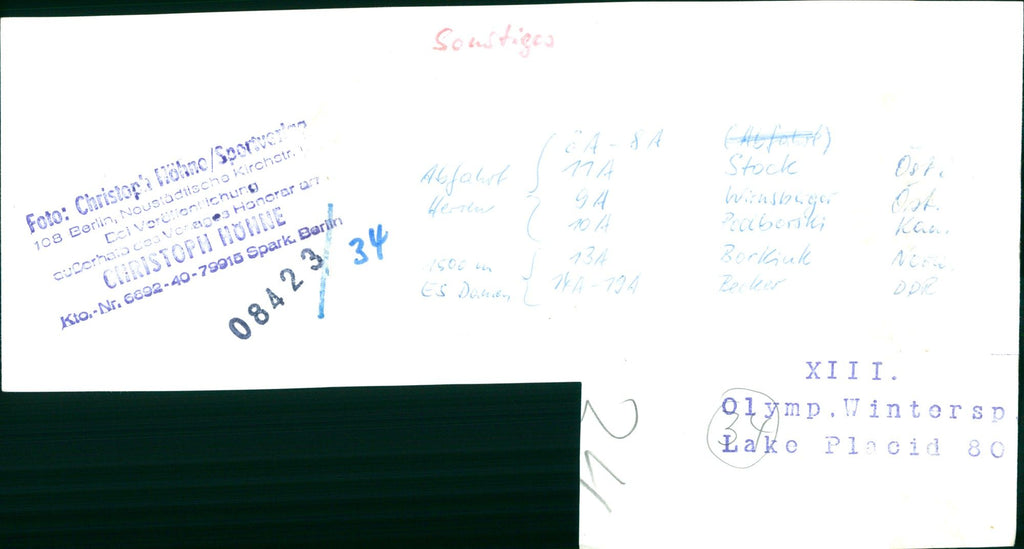 Sonstiges
Foto: Christoph Höhne/Sportverlag
108 Berlin, Neustädtische Kirchstr.
Bei Veröffentlichung
außerhalb des Verlages Honorar an:
CHRISTOPH HÖHNE
Kto.-Nr. 6892-40-79915 Spark. Berlin
08423/34
8A - 8A (Abfahrt)
Abfahrt 11A Stock Öst.
Herren 9A Wirnsberger Öst.
10A Podborski Kan.
1500 m 13A Borckink Norw.
ES Damen 14A-19A Becker DDR
XIII.
Olymp.Wintersp
Lake Placid 80
34
24